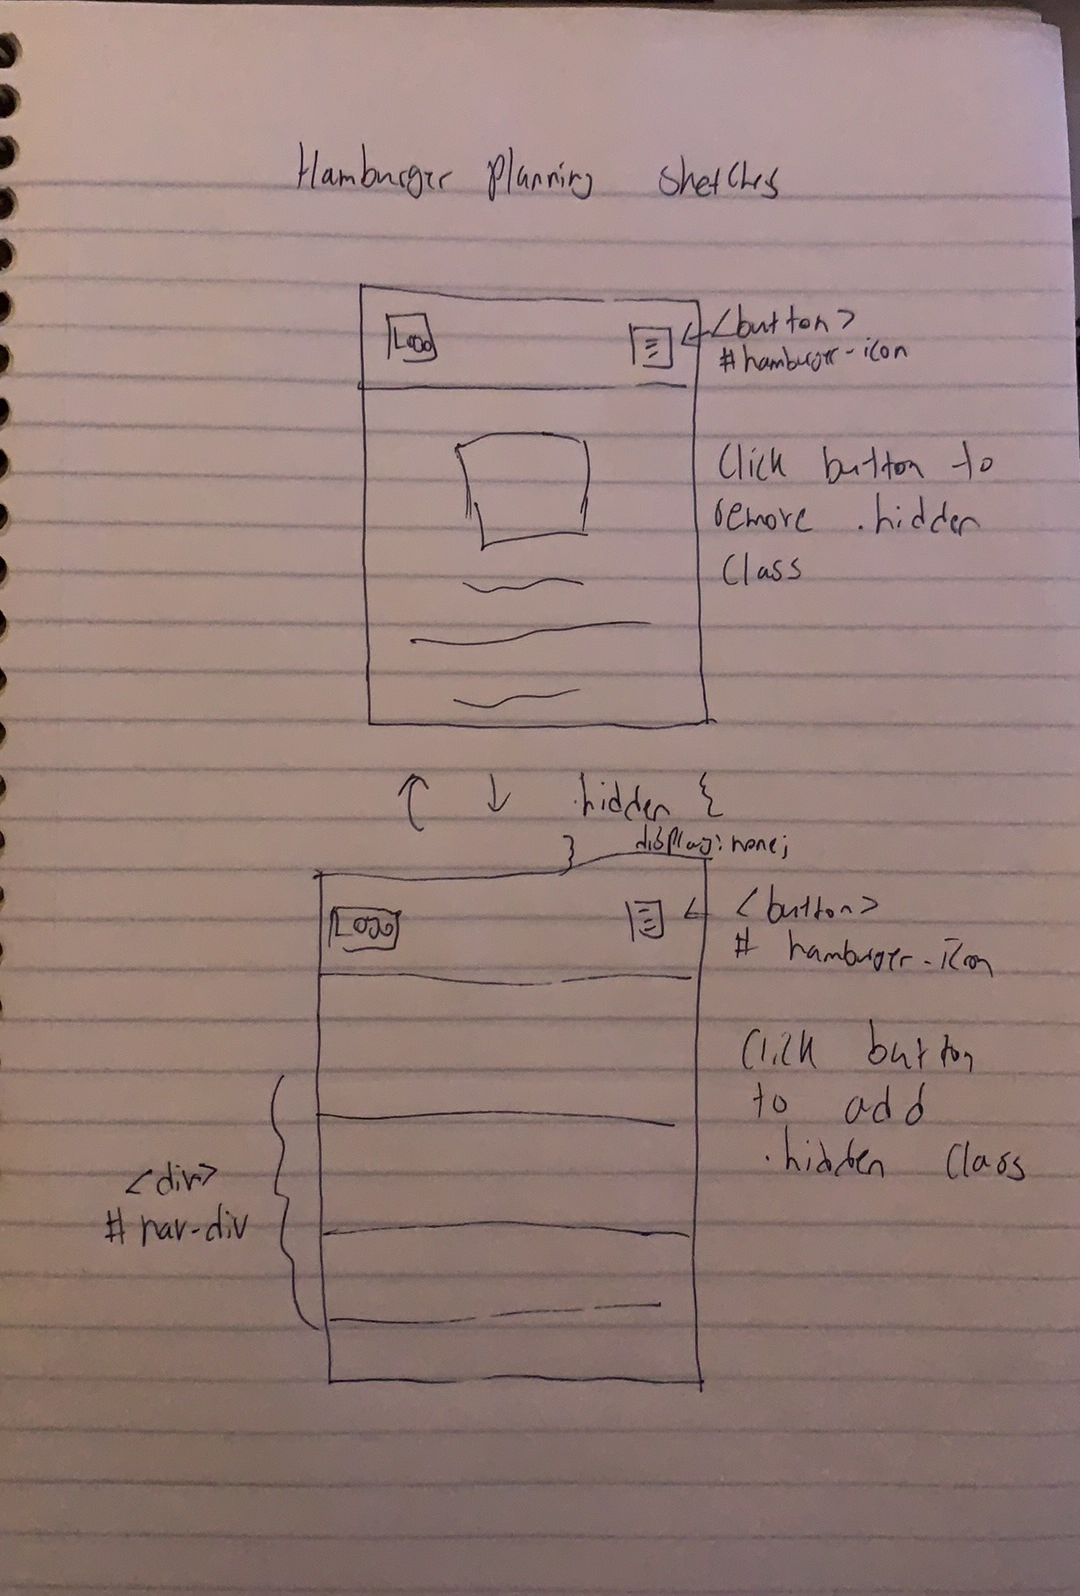 Hamburger Planning Sketches
Logo
<button>
#hamburger-icon
Click button to
remove .hidden
Class
.hidden {
display: none;
}
Logo
<button>
# hamburger-icon
Click button
to add
.hidden Class
<div>
# nav-div